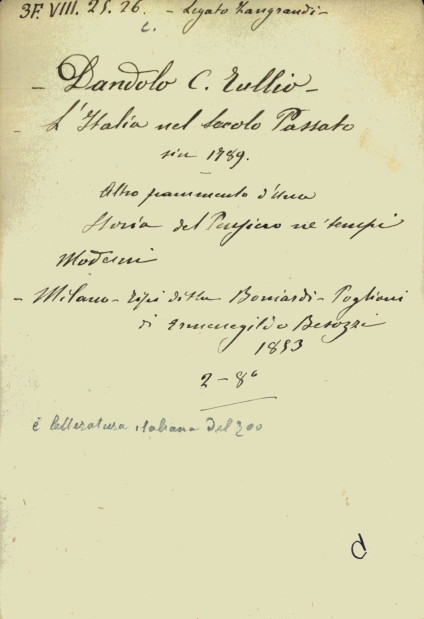 3F. VIII. 25. 26. - Legato Zangrandi -
c.
- Dandolo C. Tullio -
- L'Italia nel Secolo Passato
sin 1789.
Altro frammento d'una
Storia del Pensiero ne' tempi
Moderni
- Milano - Tipi ditta Boniardi - Pogliani
di Ermenegildo Besozzi
1853
2 - 8°
è letteratura italiana del 700